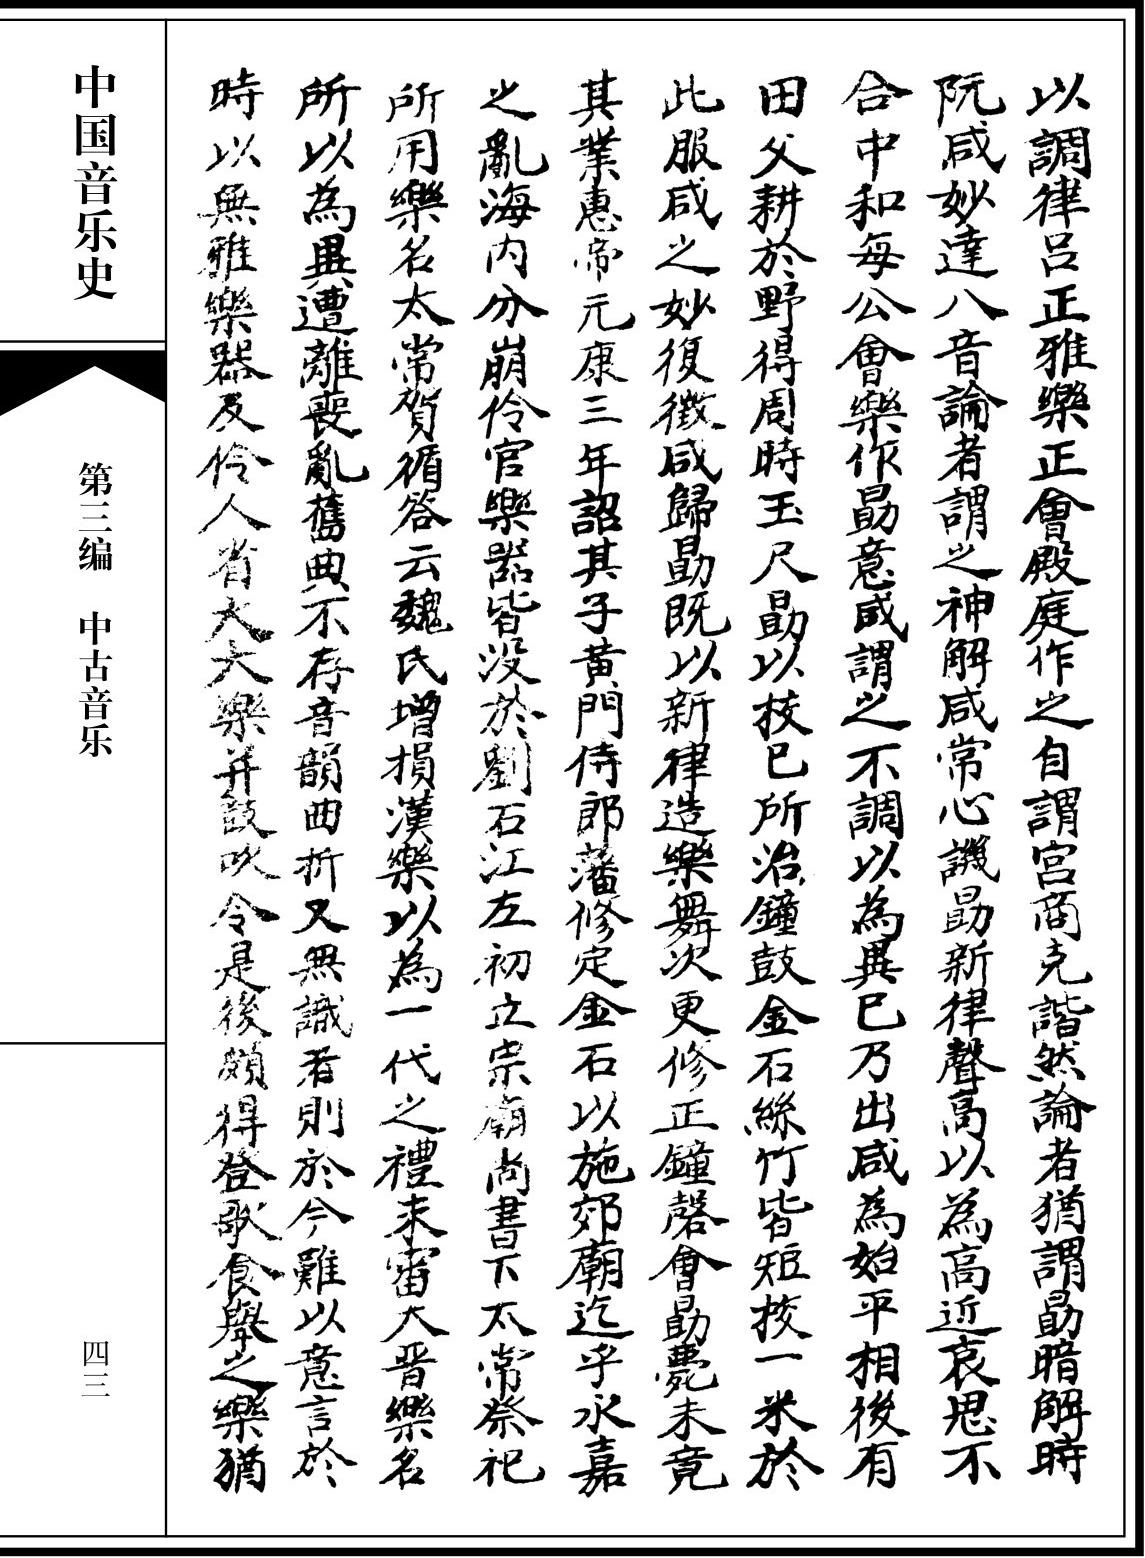 以調律呂正雅樂正會殿庭作之自謂宮商克諧然論者猶謂勗暗解時
阮咸妙達八音論者謂之神解咸常心譏勗新律聲高以為高近哀思不
合中和每公會樂作勗意咸謂之不調以為異己乃出咸為始平相後有
田父耕於野得周時玉尺勗以校己所治鐘鼓金石絲竹皆短校一米於
此服咸之妙復徵咸歸勗既以新律造樂舞次更修正鐘磬會勗薨未竟
其業惠帝元康三年詔其子黃門侍郎藩修定金石以施郊廟迄乎永嘉
之亂海內分崩伶官樂器皆沒於劉石江左初立宗廟尚書下太常祭祀
所用樂名太常賀循答云魏氏增損漢樂以為一代之禮未審大晋樂名
所以為異遭離喪亂舊典不存音韻曲折又無識者則於今難以意言於
時以無雅樂器及伶人省太樂并鼓吹令是後頗得登歌食舉之樂猶
中国音乐史
第三编 中古音乐
四三